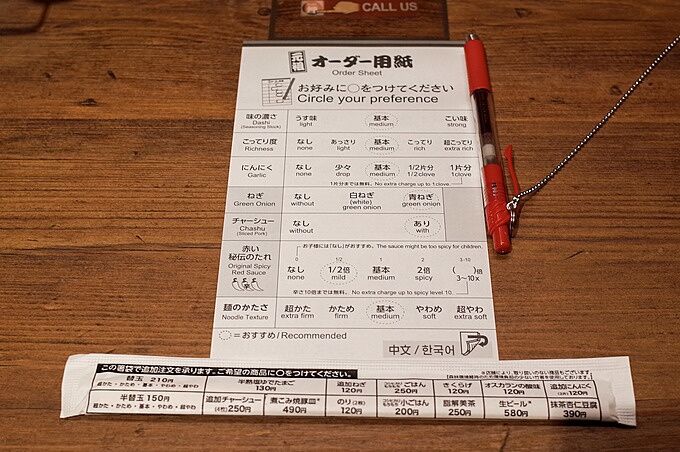 CALL US
元祖 オーダー用紙
Order Sheet
お好みに○をつけてください
Circle your preference
味の濃さ うす味 基本 こい味
Dashi light medium strong
(Seasoning Stock)
こってり度 なし あっさり 基本 こってり 超こってり
Richness none light medium rich extra rich
にんにく なし 少々 基本 1/2片分 1片分
Garlic none drop medium 1/2clove 1clove
1片分までは無料。No extra charge up to 1clove.
ねぎ なし 白ねぎ 青ねぎ
Green Onion without (white) green onion green onion
チャーシュー なし あり
Chashu without with
(Sliced Pork)
お子様には「なし」がおすすめ。The sauce might be too spicy for children.
赤い 0 1/2 1 2 3-10
秘伝のたれ なし 1/2倍 基本 2倍 ( )倍
Original Spicy none mild medium spicy 3~10x
Red Sauce
辛さ10倍までは無料。No extra charge up to spicy level 10.
麺のかたさ 超かた かため 基本 やわめ 超やわ
Noodle Texture extra firm firm medium soft extra soft
=おすすめ/Recommended
中文 / 한국어
この箸袋で追加注文を承ります。ご希望の商品に○をつけてください。
替玉 210円 半熟塩ゆでたまご 追加ねぎ ごはん きくらげ オスカランの酸味 追加にんにく
超かた・かため・基本・やわめ・超やわ 130円 120円 250円 120円 120円 120円
半替玉 150円 追加チャーシュー 煮こみ焼豚皿 のり(2枚) 小ごはん 脂解美茶 生ビール 抹茶杏仁豆腐
超かた・かため・基本・やわめ・超やわ (4枚) 250円 490円 120円 200円 250円 580円 390円